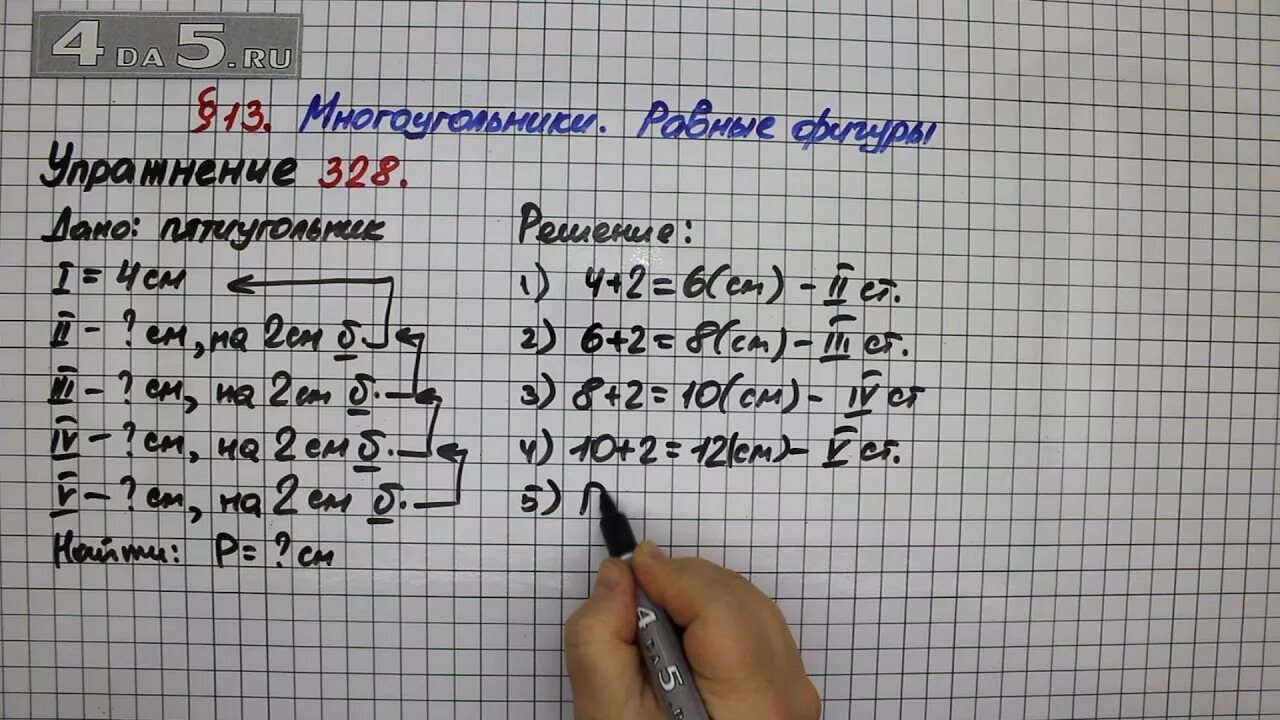 4DA5.RU
§13. Многоугольники. Равные фигуры
Упражнение 328.
Дано: пятиугольник
I = 4 см
II - ? см, на 2 см б.
III - ? см, на 2 см б.
IV - ? см, на 2 см б.
V - ? см, на 2 см б.
Найти: P = ? см
Решение:
1) 4+2=6(см) - II ст.
2) 6+2=8(см) - III ст.
3) 8+2=10(см) - IV ст
4) 10+2=12(см) - V ст.
5)
4DA5.